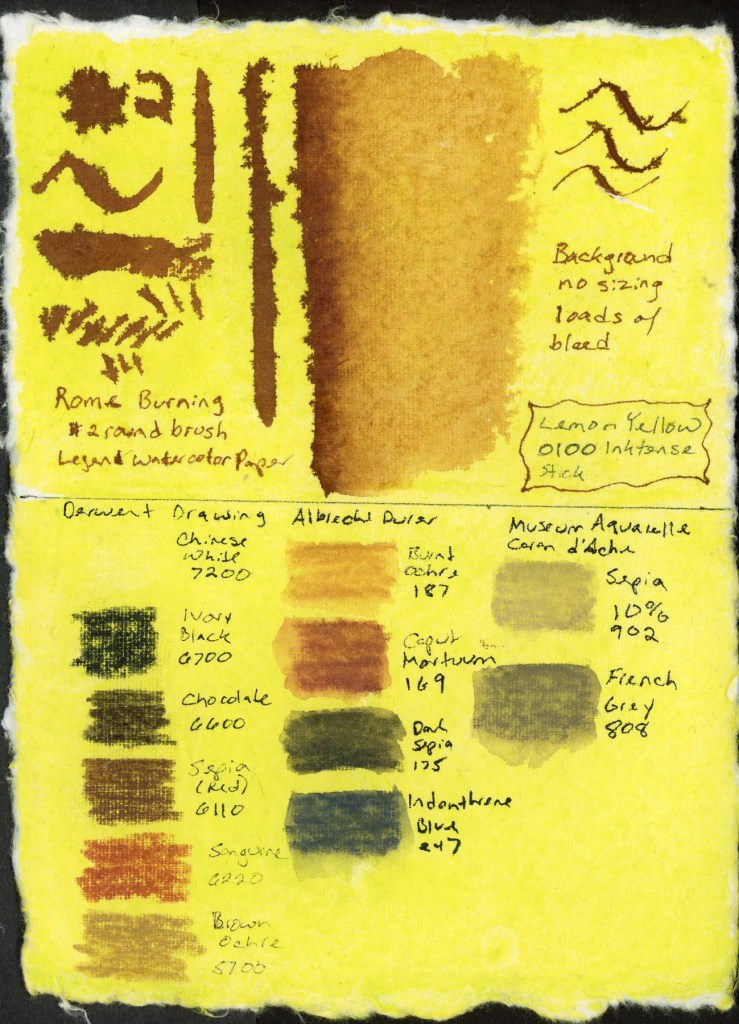 Background
no sizing
loads of
bleed
Rome Burning
#2 round brush
Legend Watercolor Paper
Lemon Yellow
0100 Inktense
Stick
Derwent Drawing
Chinese
White
7200
Ivory
Black
6700
Chocolate
6600
Sepia
(Red)
6110
Sanguine
6220
Brown
Ochre
5700
Albrecht Durer
Burnt
Ochre
187
Caput
Mortuum
169
Dark
Sepia
175
Indanthrene
Blue
247
Museum Aquarelle
Caran d'Ache
Sepia
10%
902
French
Grey
808